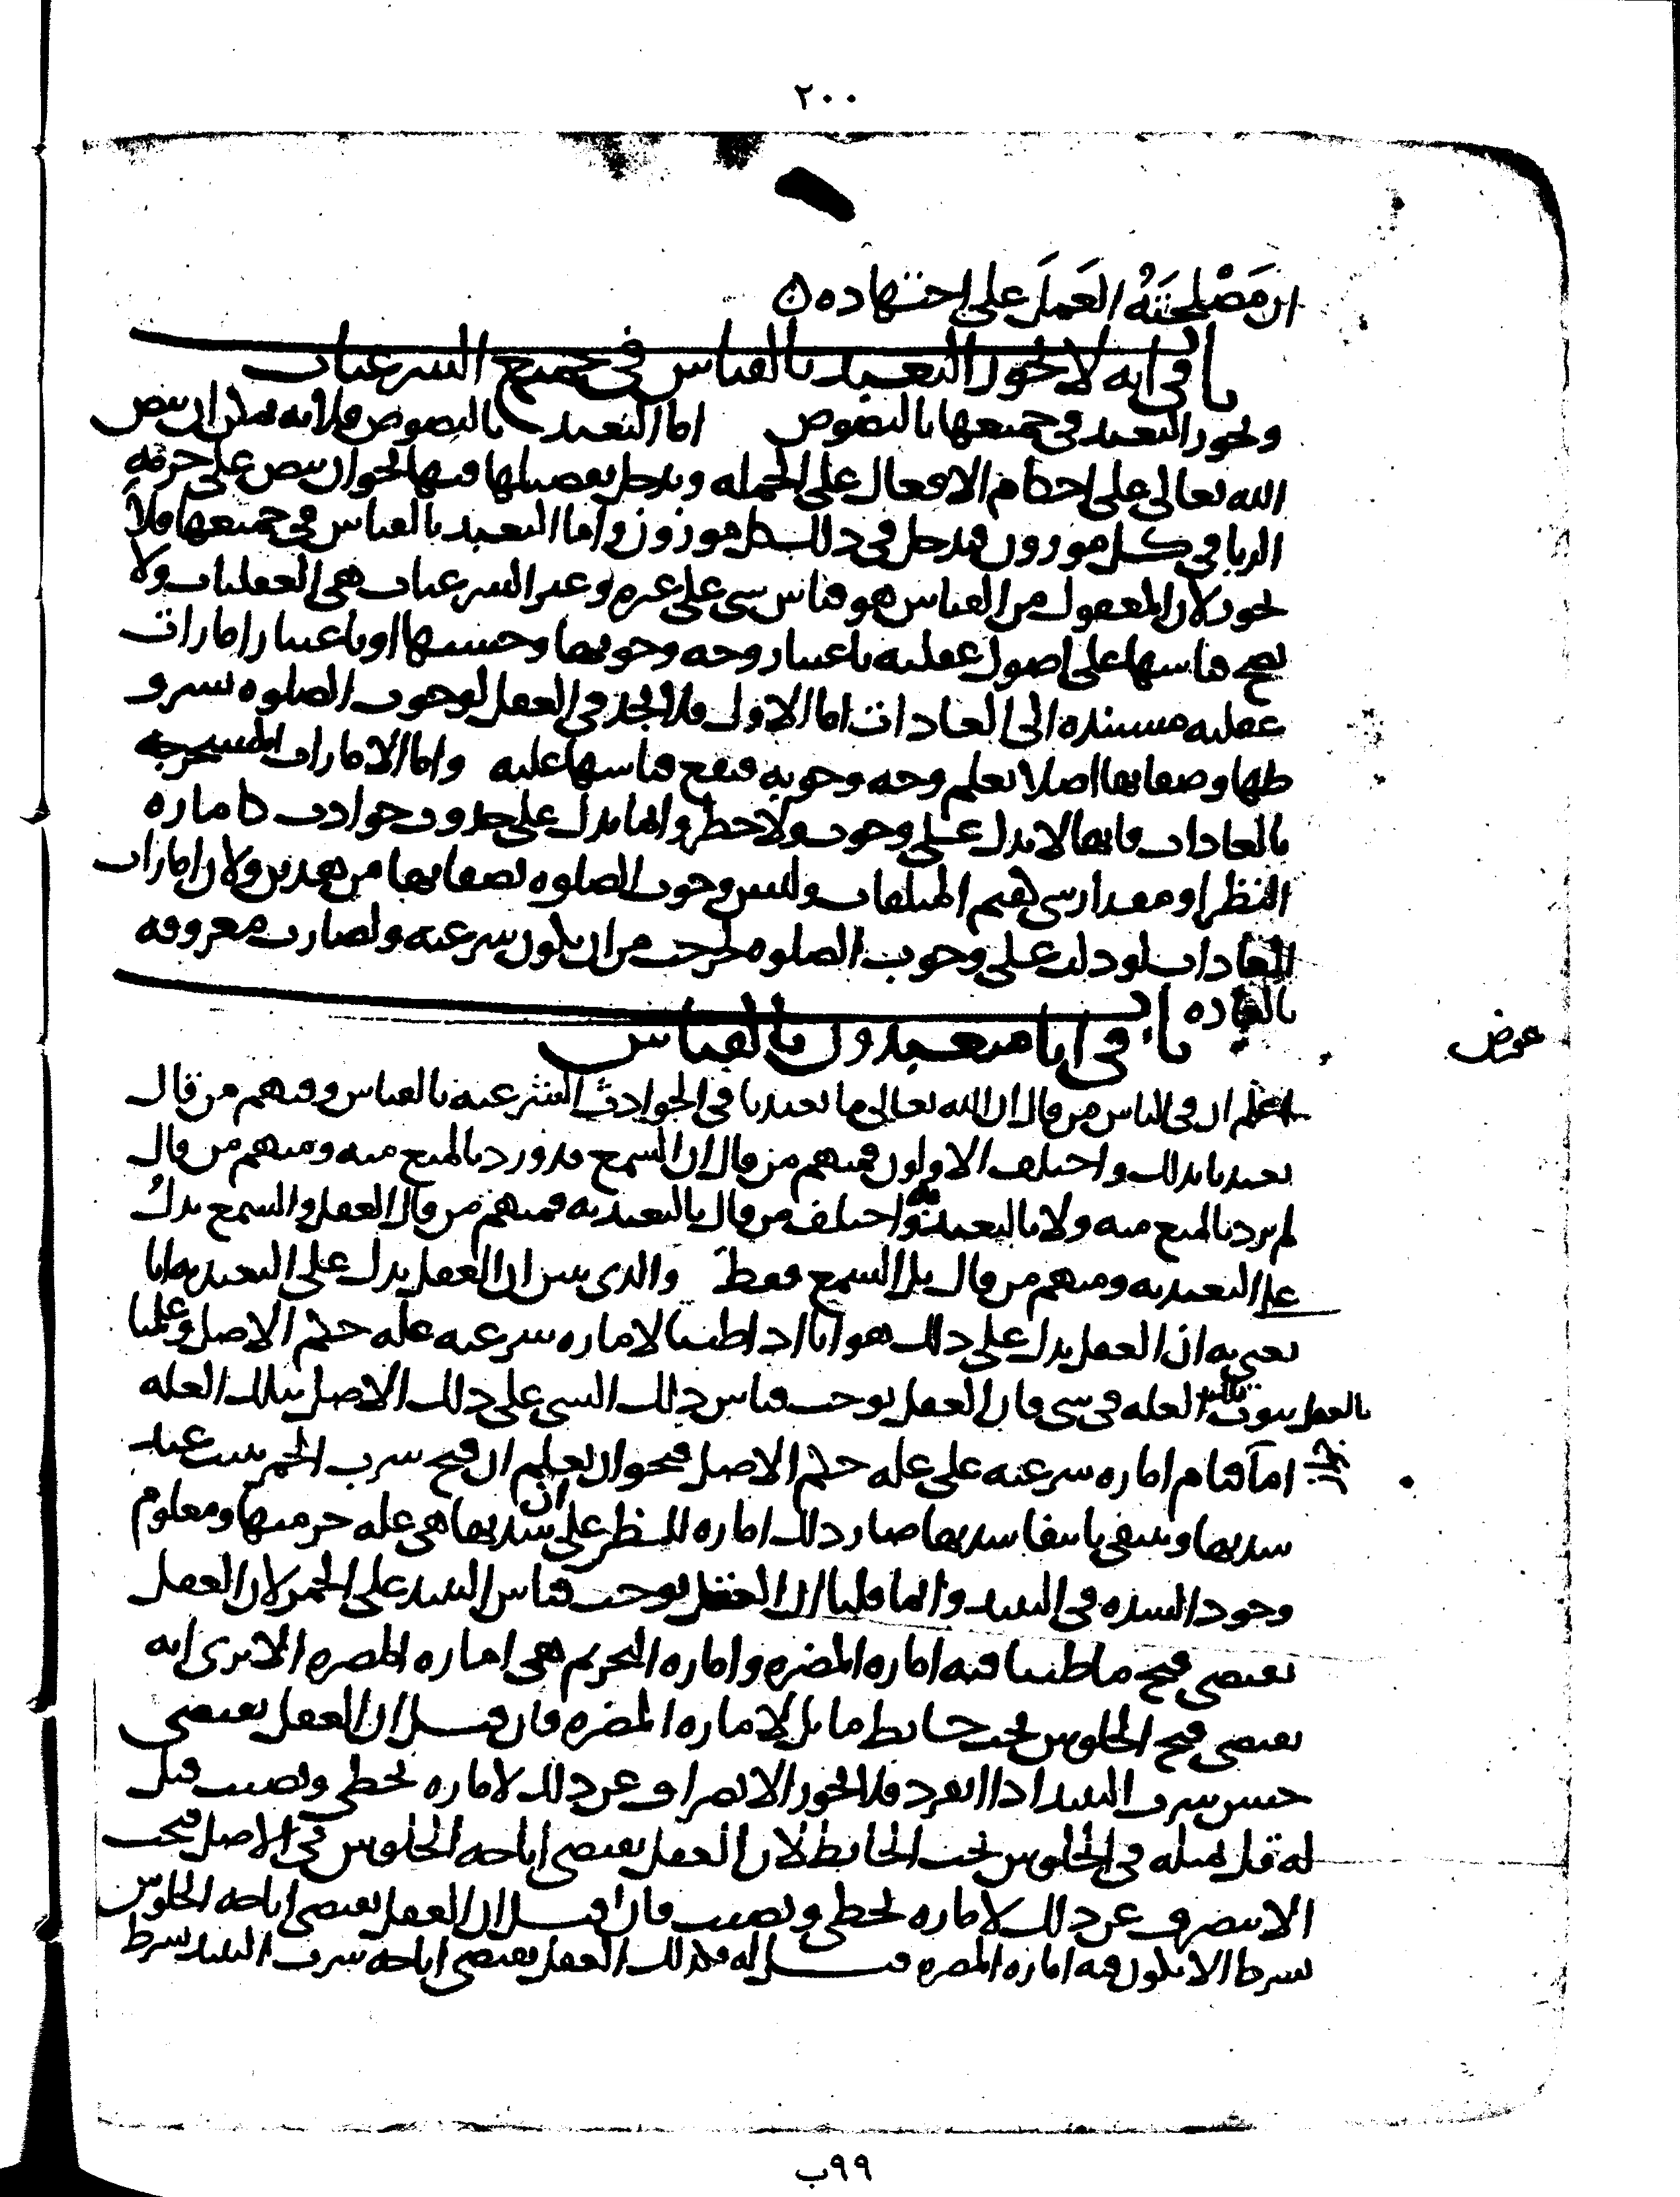 ٢٠٠
ان مَصْلحَتَهُ العَملَ على اجتهاده ن
باب في انه لا يجوز التعبد بالقياس في جميع الشرعيات
ويجوز التعبد في جميعها بالنصوص اما التعبد بالنصوص فلانه يمكن ان ينص
الله تعالى على احكام الافعال على الجمله ويدخل تفصيلها فيها نحو ان ينص على حرمه
الربا في كل موزون فيدخل في ذلك كل موزون واما التعبد بالقياس في جميعها فلا
يجوز لان المعقول من القياس هو قياس شي على غيره وغير الشرعيات هي العقليات ولا
يصح قياسها على اصول عقليه باعتبار وجه وجوبها وحسنها او باعتبار امارات
عقليه مستنده الى العادات اما الاول فلا نجد في العقل لوجوب الصلوه بشرو
طها وصفاتها اصلا نعلم وجه وجوبه فيقع قياسها عليه واما الامارات المستخرجه
بالعادات فانها لا تدل على وجوب ولا حظر وانما تدل على حدوث حوادث كاماره
المطر او مقدار شي كقيم المتلفات وليس وجوب الصلوه بصفاتها من هذين ولان امارات
العادات لو دلت على وجوب الصلوه لخرجت من ان تكون شرعيه ولصارت معروفه
بالعاده
باب في انا متعبدون بالقياس
عوض
اعلم ان في الناس من قال ان الله تعالى ما تعبدنا في الحوادث الشرعيه بالقياس ومنهم من قال
تعبدنا بذلك واختلف الاولون فمنهم من قال ان السمع قد ورد بالمنع منه ومنهم من قال
لم يرد بالمنع منه ولا بالتعبد به واختلف من قال بالتعبد به فمنهم من قال العقل والسمع يدل
على التعبد به ومنهم من قال بل السمع فقط والذي يبين ان العقل يدل على التعبد به انا
نعني به ان العقل يدل على ذلك هو انا اذا ظننا لاماره شرعيه عله حكم الاصل وعلمنا
بالعقل ثبوت تلك العله في شي فان العقل يوجب قياس ذلك الشي على ذلك الاصل بتلك العله
اما قيام اماره شرعيه على عله حكم الاصل فنحو ان نعلم ان قبح شرب الخمر يثبت عند
شدتها وينتفي بانتفا شدتها صار ذلك اماره للظن على ان شدتها هي عله حرمتها ومعلوم
وجود الشده في النبيذ وانما قلنا ان العقل يوجب قياس النبيذ على الخمر لان العقل
يقتضي قبح ما ظننا فيه اماره المضره واماره التحريم هي اماره المضره الا ترى انه
يقتضي قبح الجلوس تحت حائط مائل لاماره المضره فان قيل ان العقل يقتضي
حسن شرب النبيذ اذا انفرد فلا يجوز الانصراف عن ذلك لاماره تخطي وتصيب قيل
له قل مثله في الجلوس تحت الحائط لان العقل يقتضي اباحه الجلوس في الاصل فيجب
الا ينصرف عن ذلك لاماره تخطي وتصيب فان قيل ان العقل يقتضي اباحه الجلوس
بشرط الا يكون فيه اماره المضره قيل له وكذلك العقل يقتضي اباحه شرب النبيذ بشرط
٩٩ب